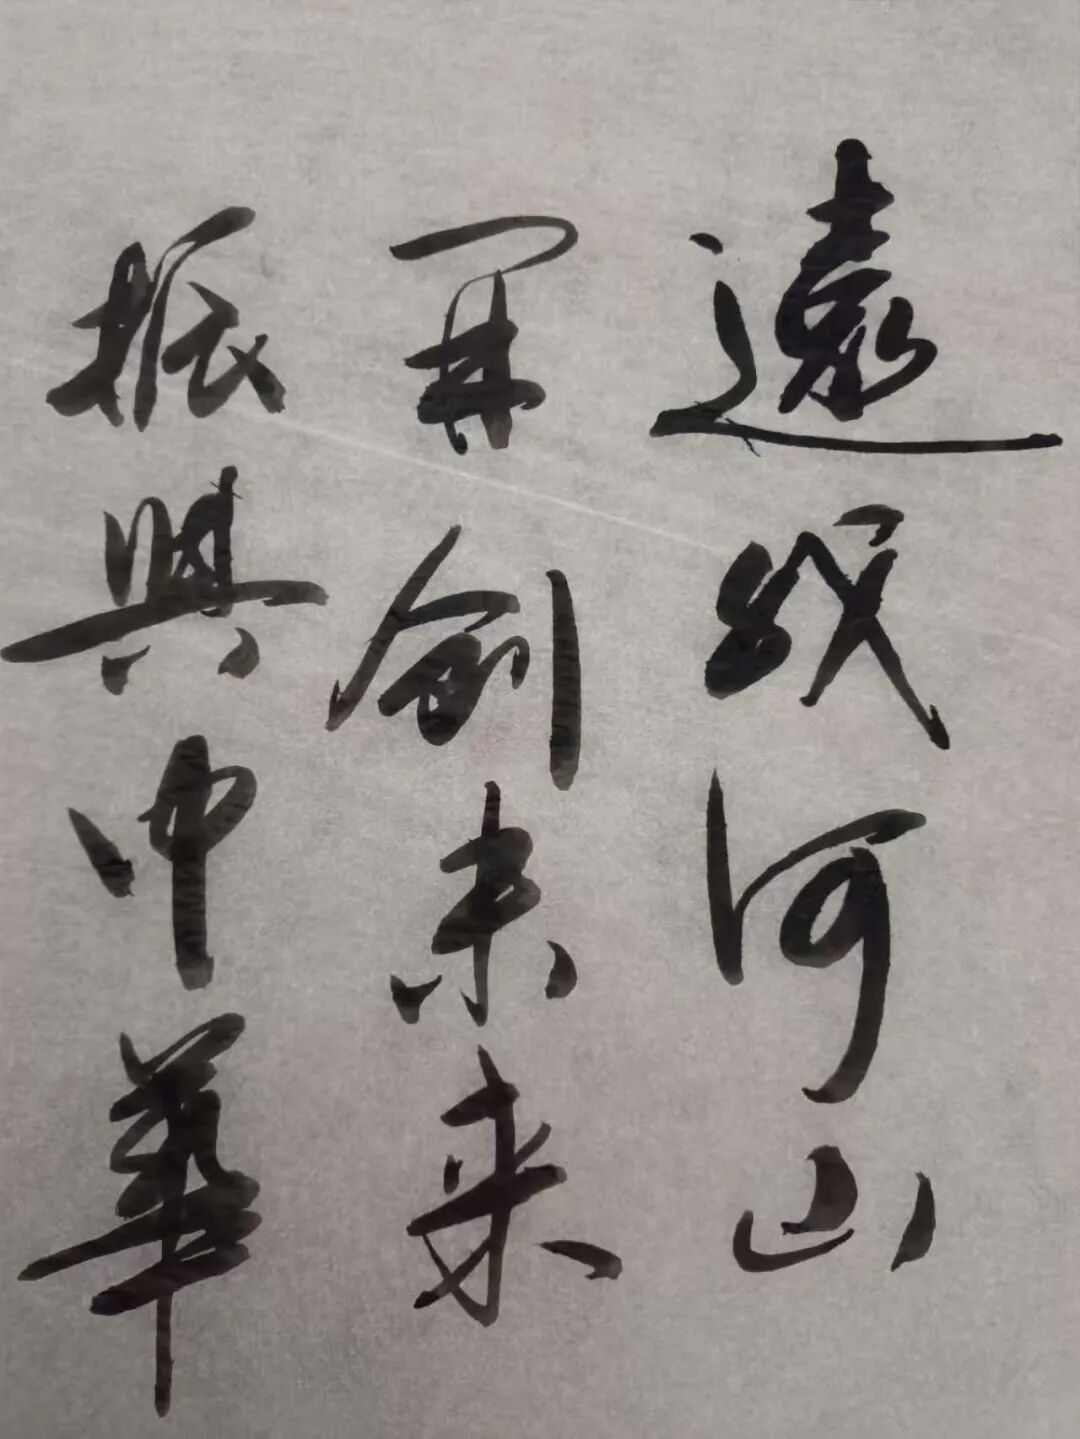 遠河山
開創未来
振興中華